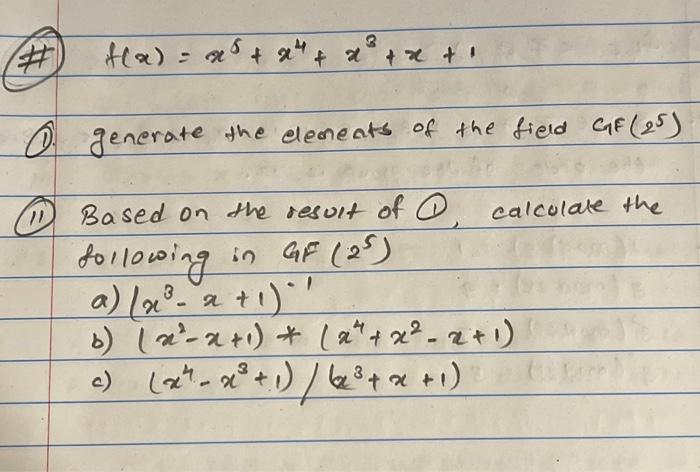 # f(x) = x⁵ + x⁴ + x³ + x + 1
① generate the elements of the field GF(2⁵)
⑪ Based on the result of ①, calculate the
following in GF (2⁵)
a) (x³ - x + 1)⁻¹
b) (x² - x + 1) * (x⁴ + x² - x + 1)
c) (x⁴ - x³ + 1) / (x³ + x + 1)